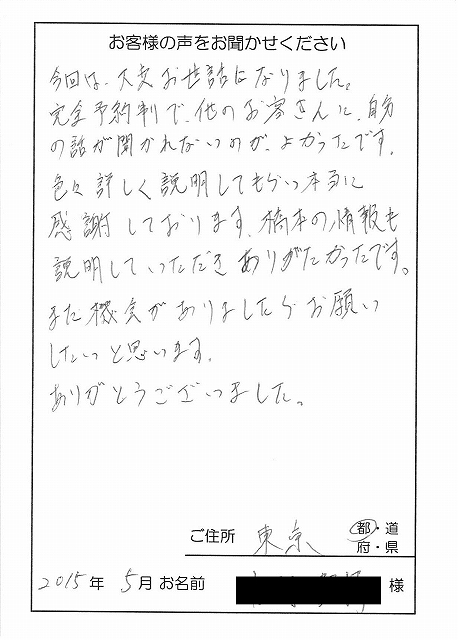 お客様の声をお聞かせください
今回は、大変お世話になりました。
完全予約制で、他のお客さんに、自分
の話が聞かれないのが、よかったです。
色々詳しく説明してもらい本当に
感謝しております。橋本の情報も
説明していただきありがたかったです。
また機会がありましたらお願い
したいと思います。
ありがとうございました。
ご住所 東京 都・道
府・県
2015年 5月 お名前 様